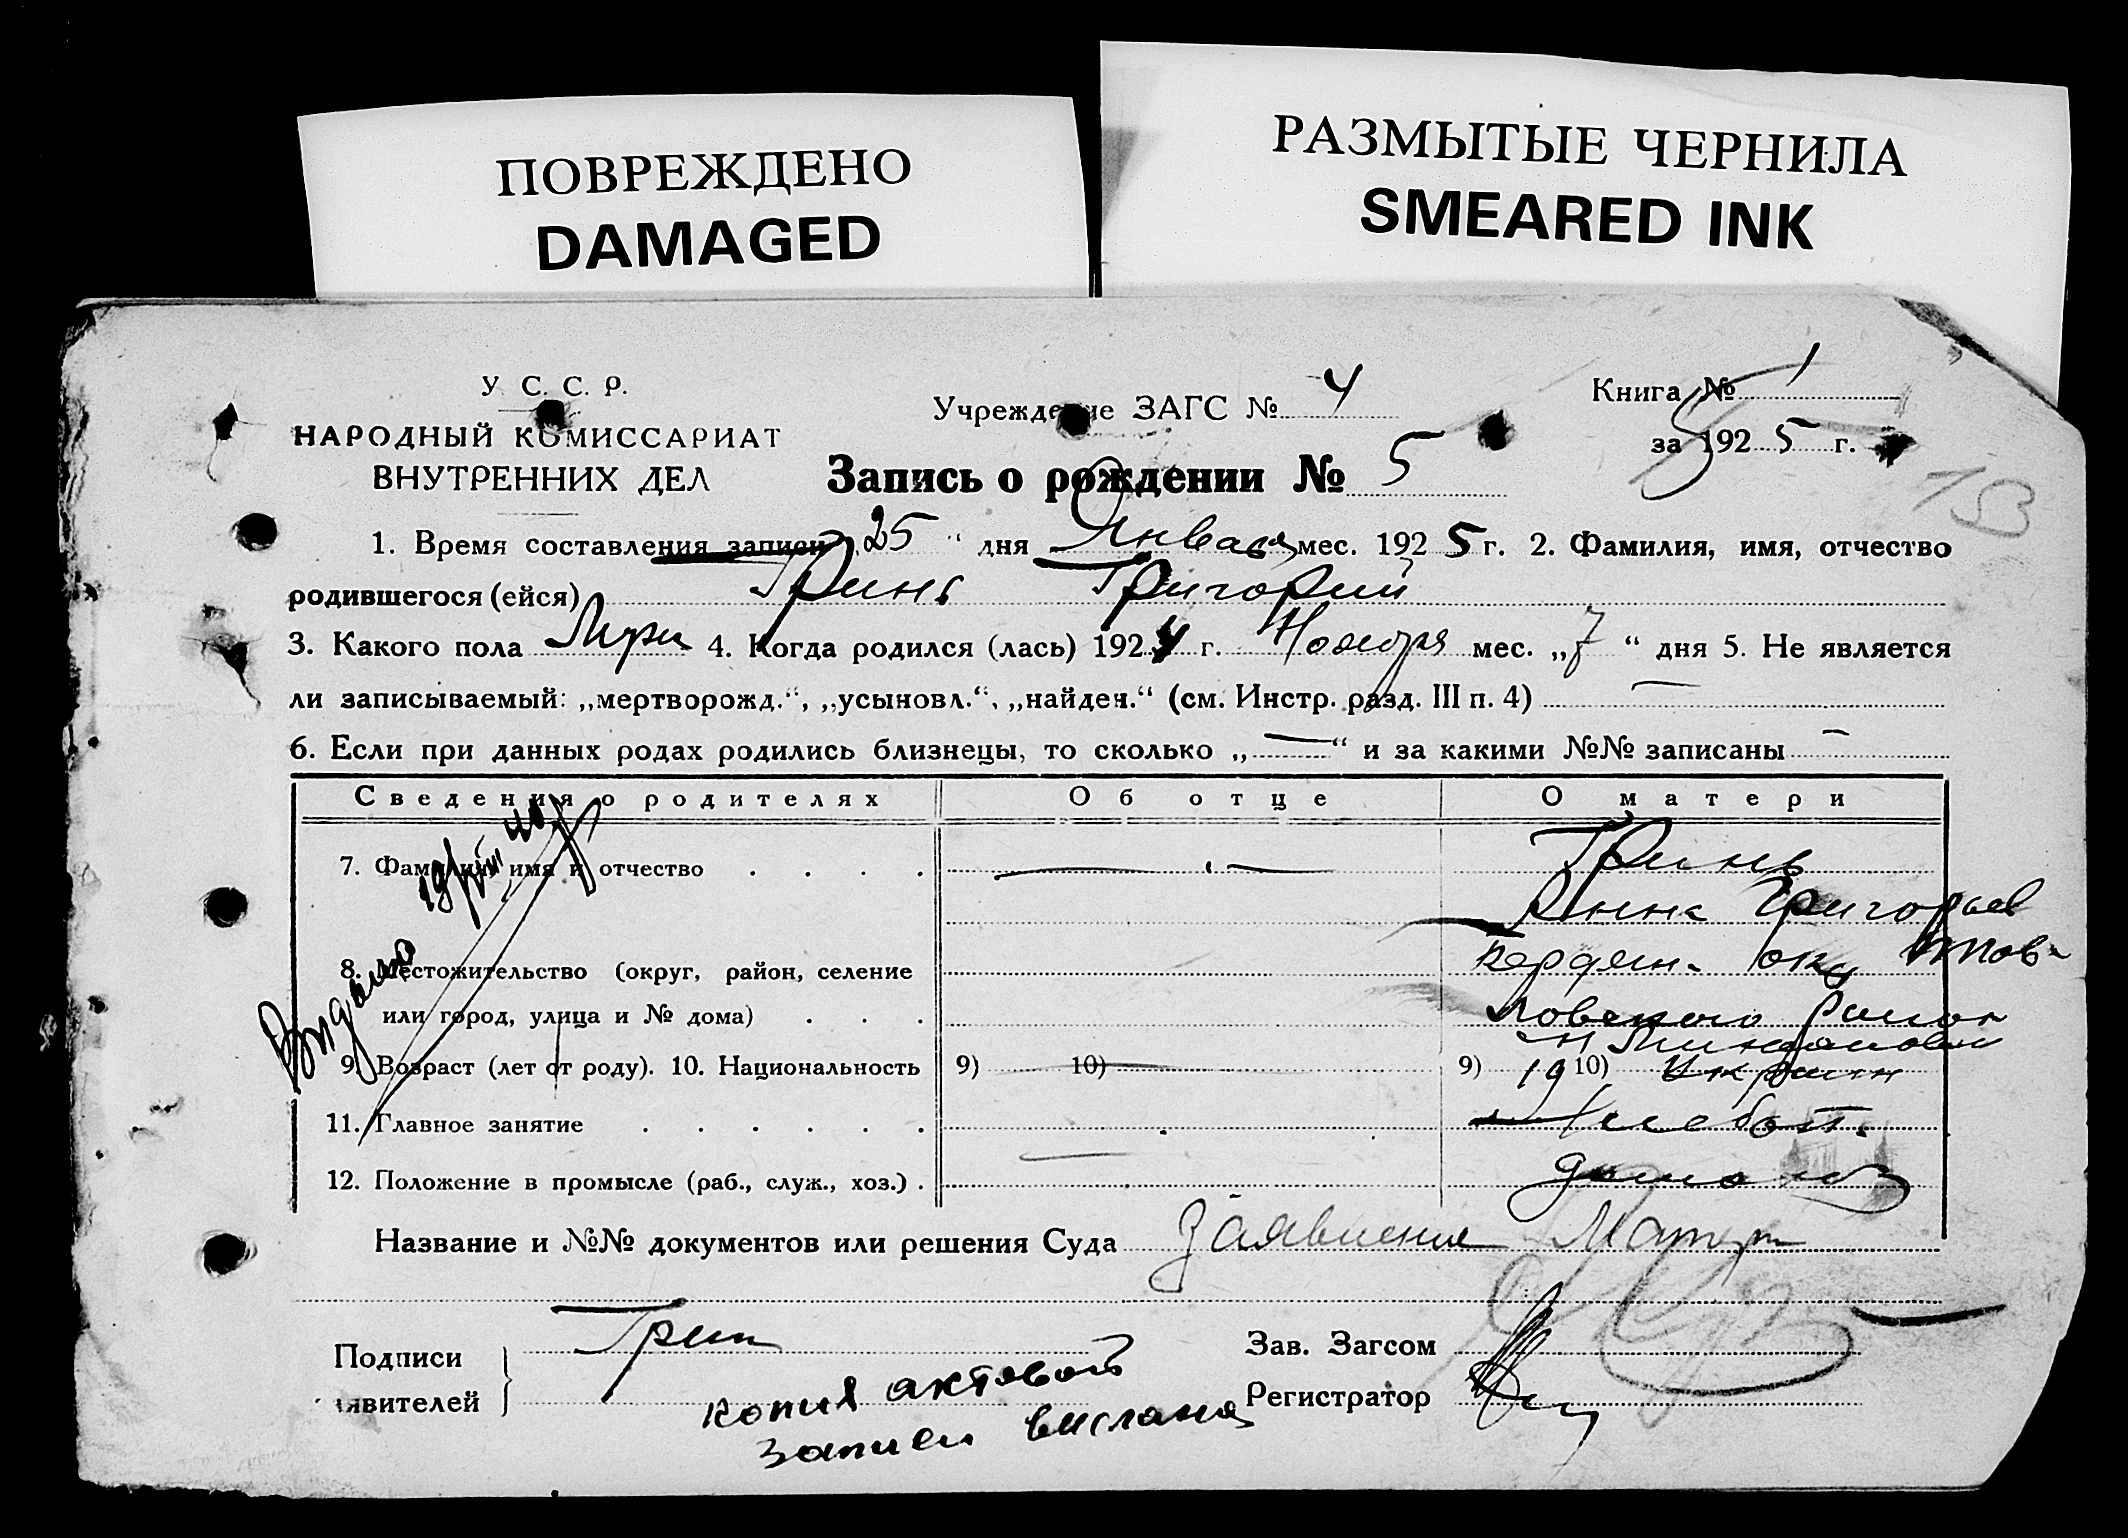 ПОВРЕЖДЕНО
DAMAGED
РАЗМЫТЫЕ ЧЕРНИЛА
SMEARED INK
У С. С. Р.
НАРОДНЫЙ КОМИССАРИАТ
ВНУТРЕННИХ ДЕЛ
Учреждение ЗАГС № 4
Книга № 1
за 1925 г.
13
Запись о рождении № 5
1. Время составления записи „25“ дня Января мес. 1925 г. 2. Фамилия, имя, отчество
родившегося (ейся) Гринь Григорий
3. Какого пола Муж 4. Когда родился (лась) 1924 г. Ноября мес. „7“ дня 5. Не является
ли записываемый: „мертворожд.“, „усыновл.“, „найден.“ (см. Инстр. разд. III п. 4) —
6. Если при данных родах родились близнецы, то сколько „—“ и за какими №№ записаны —
Сведения о родителях Об отце О матери
7. Фамилия, имя и отчество . . . . — Гринь
Анна Григорьев
8. Местожительство (округ, район, селение Бердян. окр
или город, улица и № дома) . . . ловского район
9. Возраст (лет от роду). 10. Национальность 9) 10) 9) 19 10) Украин
11. Главное занятие . . . . . . Хлебоп.
12. Положение в промысле (раб., служ., хоз.) .
Видано
Название и №№ документов или решения Суда Заявление Матери
Подписи
явителей
Грин
Зав. Загсом
Регистратор
копия актовой
записи выслана